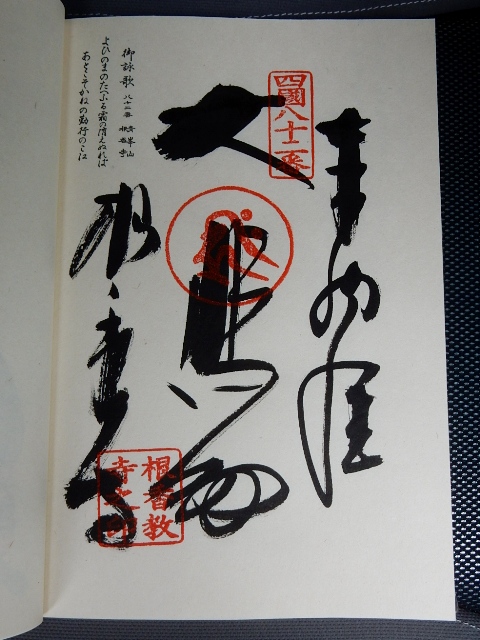 奉納経
四國八十二番
大悲
根香寺
根香教
寺之印
御詠歌 八十二番 青峯山
根香寺
よひのまのたへふる霜の消えぬれば
あとこそかねの勤行のこゑ